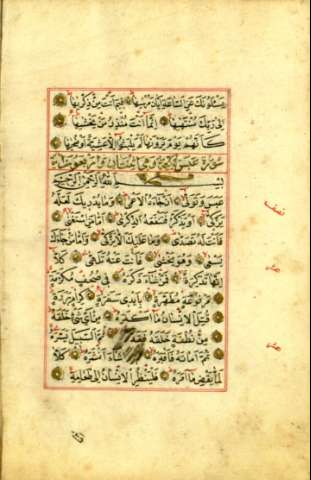 يسئلونك عن الساعة ايان مرسيها فيم انت من ذكريها
الى ربك منتهيها انما انت منذر من يخشيها
كانهم يوم يرونها لم يلبثوا الا عشية او ضحيها
سورة عبس
بسم الله الرحمن الرحيم
عبس وتولى ان جاءه الاعمى وما يدريك لعله
يزكى او يذكر فتنفعه الذكرى اما من استغنى
فانت له تصدى وما عليك الا يزكى واما من جاءك
يسعى وهو يخشى فانت عنه تلهى كلا
انها تذكرة فمن شاء ذكره فى صحف مكرمة
مرفوعة مطهرة بايدى سفرة كرام بررة
قتل الانسان ما اكفره من اى شئ خلقه
من نطفة خلقه فقدره ثم السبيل يسره
ثم اماته فاقبره شاء انشره كلا
لما يقض ما امره فلينظر الانسان الى طعامه